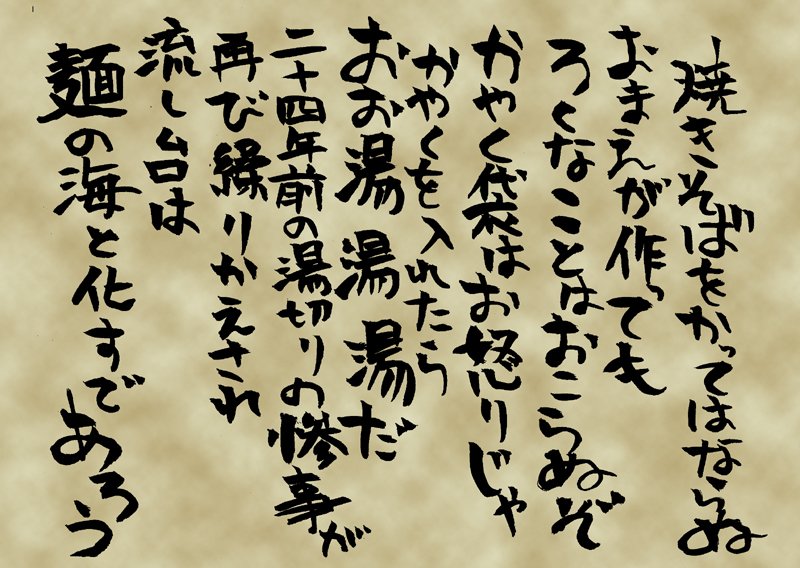 焼きそばをかってはならぬ
おまえが作っても
ろくなことはおこらぬぞ
かやく代衣はお怒りじゃ
かやくを入れたら
おお湯湯湯だ
二十四年前の湯切りの惨事が
再び繰りかえされ
流し台は
麺の海と化すであろう